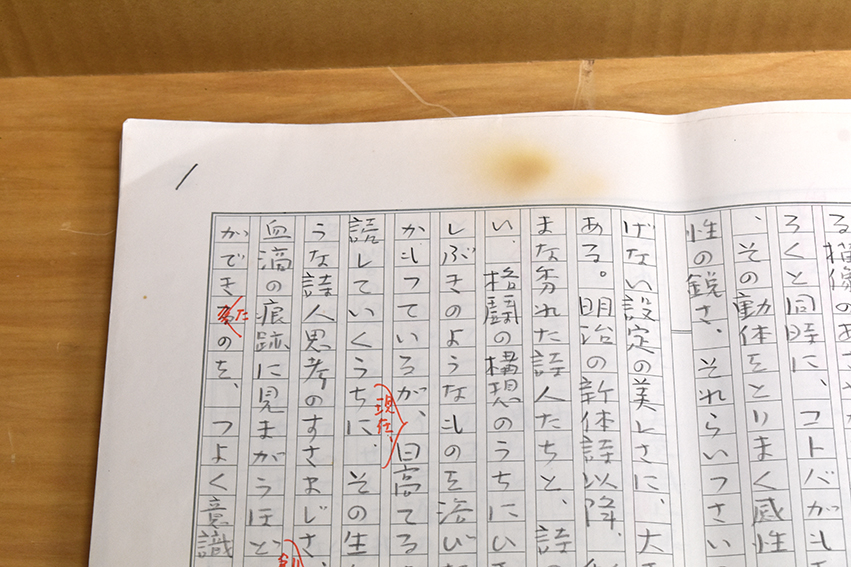 る描像のあ
ろくと同時に、コトバがも
、その動体をとりまく感性
性の鋭さ、それらいっさい
げない設定の美しさに、大
ある。明治の新体詩以降、
まな秀れた詩人たちと、詩
い、格闘の構想のうちにい
しぶきのようなものを浴び
かもっているが、現在、日高てる
読していくうちに、その生
うな詩人思考のすさまじさ、
血滴の痕跡に見まがうほど
ができたのを、つよく意識
1